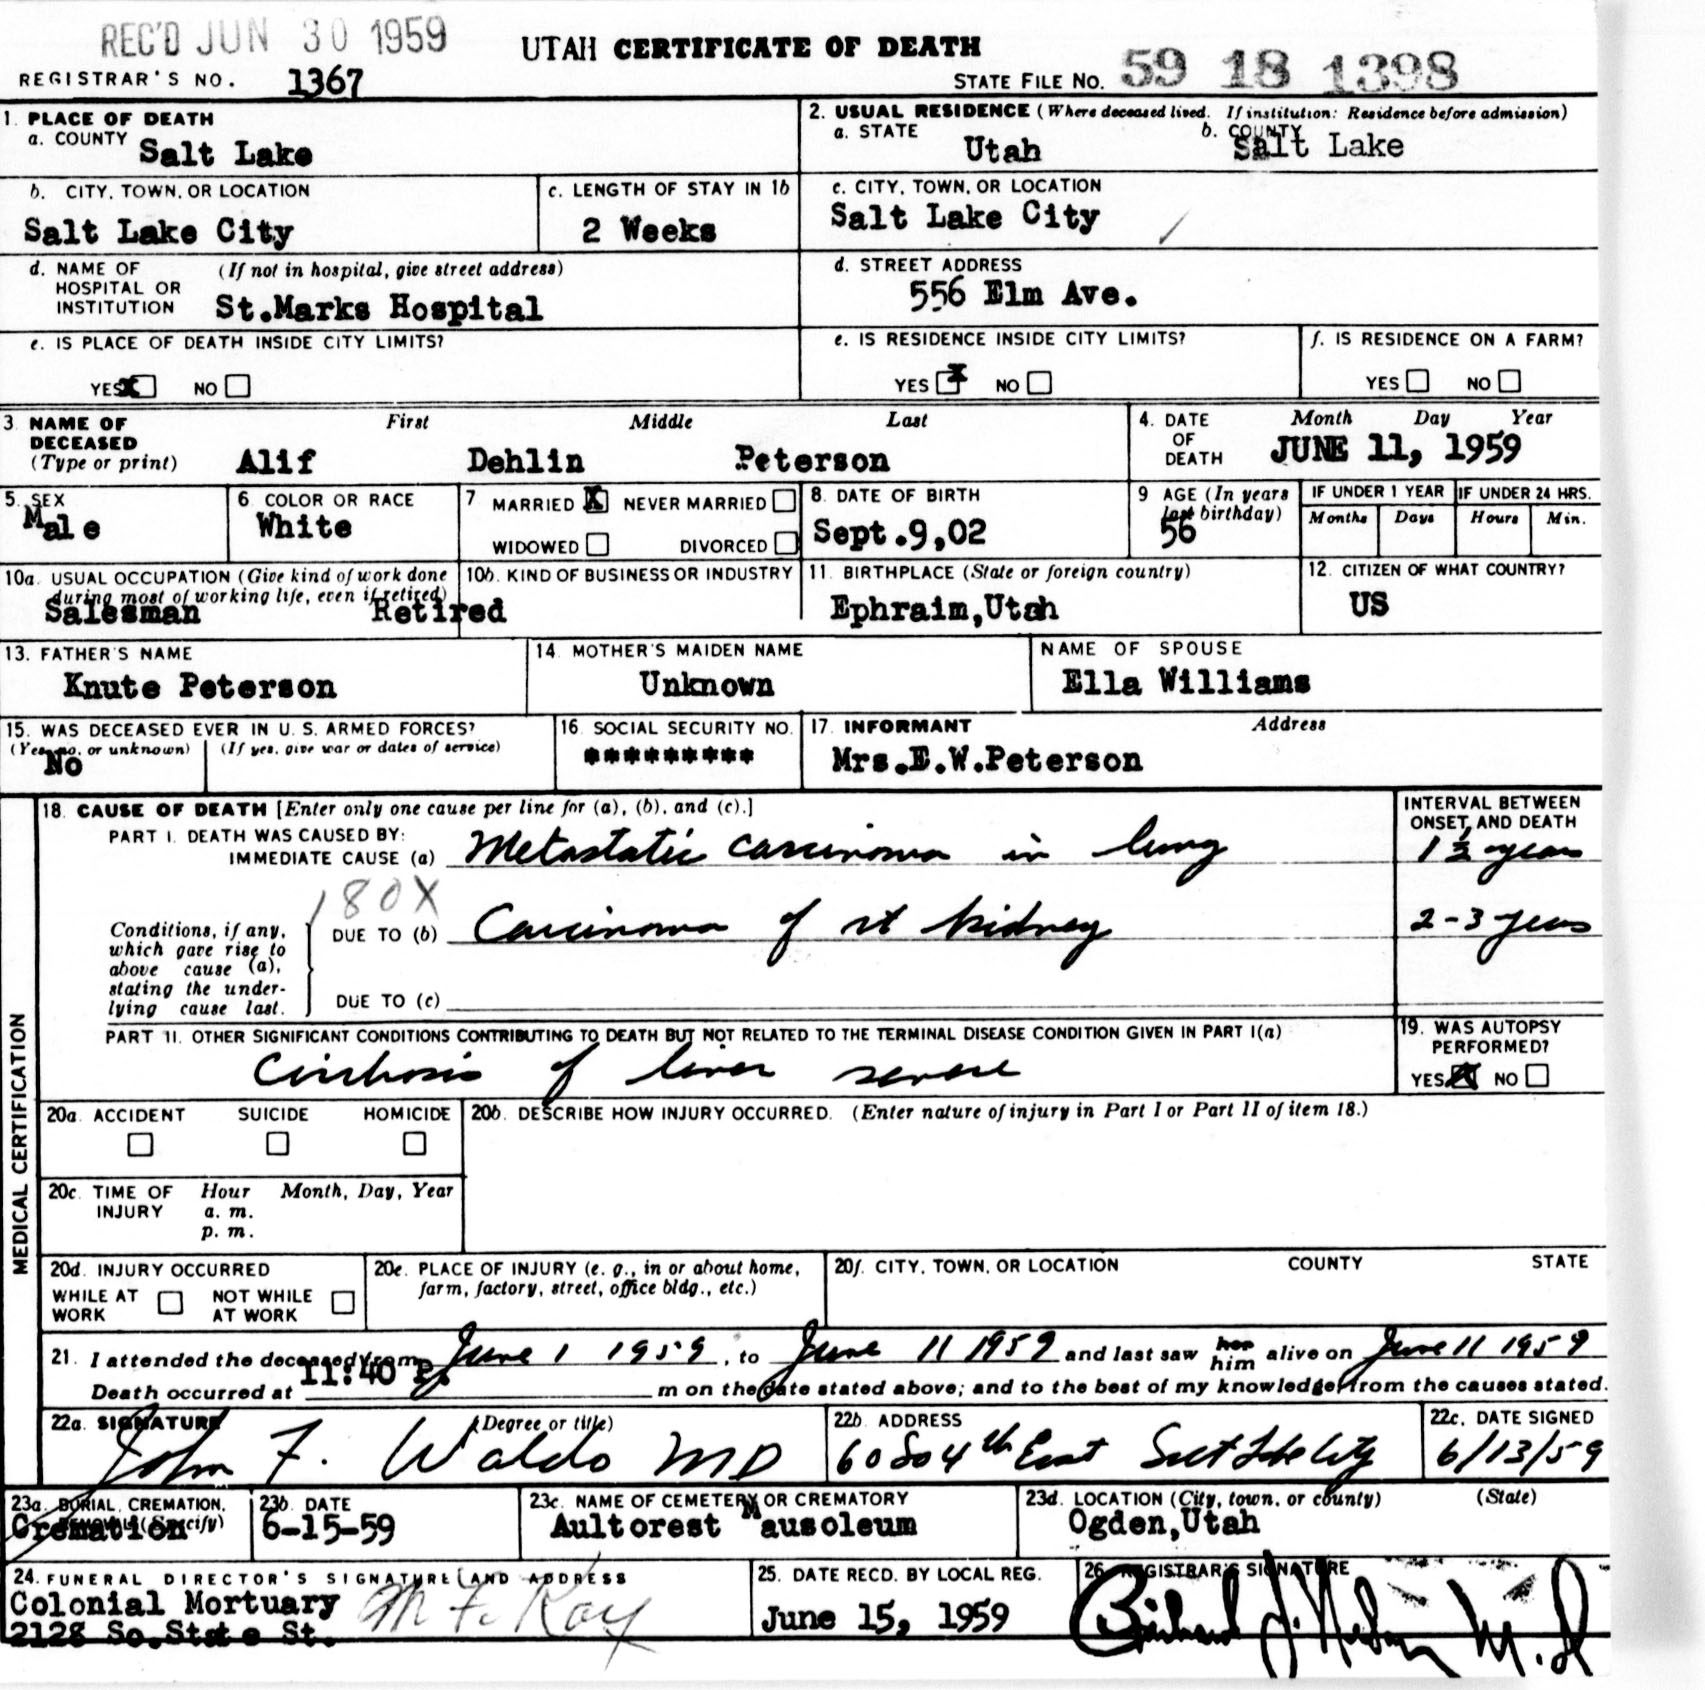 REC'D JUN 30 1959
UTAH CERTIFICATE OF DEATH
REGISTRAR'S NO. 1367
STATE FILE NO. 59 18 1398
1. PLACE OF DEATH
a. COUNTY Salt Lake
2. USUAL RESIDENCE (Where deceased lived. If institution: Residence before admission)
a. STATE Utah b. COUNTY Salt Lake
b. CITY, TOWN, OR LOCATION
Salt Lake City
c. LENGTH OF STAY IN 1b
2 Weeks
c. CITY, TOWN, OR LOCATION
Salt Lake City
d. NAME OF HOSPITAL OR INSTITUTION (If not in hospital, give street address)
St.Marks Hospital
d. STREET ADDRESS
556 Elm Ave.
e. IS PLACE OF DEATH INSIDE CITY LIMITS?
YES X NO
e. IS RESIDENCE INSIDE CITY LIMITS?
YES X NO
f. IS RESIDENCE ON A FARM?
YES NO
3. NAME OF DECEASED (Type or print) First Middle Last
Alif Dehlin Peterson
4. DATE OF DEATH Month Day Year
JUNE 11, 1959
5. SEX
Male
6. COLOR OR RACE
White
7 MARRIED X NEVER MARRIED
WIDOWED DIVORCED
8. DATE OF BIRTH
Sept.9,02
9 AGE (In years last birthday)
56
IF UNDER 1 YEAR
Months Days
IF UNDER 24 HRS.
Hours Min.
10a. USUAL OCCUPATION (Give kind of work done during most of working life, even if retired)
Salesman Retired
10b. KIND OF BUSINESS OR INDUSTRY
11. BIRTHPLACE (State or foreign country)
Ephraim,Utah
12. CITIZEN OF WHAT COUNTRY?
US
13. FATHER'S NAME
Knute Peterson
14. MOTHER'S MAIDEN NAME
Unknown
NAME OF SPOUSE
Ella Williams
15. WAS DECEASED EVER IN U. S. ARMED FORCES?
(Yes, no, or unknown) (If yes, give war or dates of service)
No
16. SOCIAL SECURITY NO.
*********
17. INFORMANT Address
Mrs.E.W.Peterson
MEDICAL CERTIFICATION
18. CAUSE OF DEATH [Enter only one cause per line for (a), (b), and (c).]
INTERVAL BETWEEN ONSET AND DEATH
PART I. DEATH WAS CAUSED BY:
IMMEDIATE CAUSE (a) Metastatic carcinoma in lung 1½ years
180X
Conditions, if any, which gave rise to above cause (a), stating the underlying cause last.
DUE TO (b) Carcinoma of rt kidney 2-3 years
DUE TO (c)
PART II. OTHER SIGNIFICANT CONDITIONS CONTRIBUTING TO DEATH BUT NOT RELATED TO THE TERMINAL DISEASE CONDITION GIVEN IN PART I(a)
Cirrhosis of liver severe
19. WAS AUTOPSY PERFORMED?
YES X NO
20a. ACCIDENT SUICIDE HOMICIDE
20b. DESCRIBE HOW INJURY OCCURRED. (Enter nature of injury in Part I or Part II of item 18.)
20c. TIME OF INJURY Hour Month, Day, Year
a. m.
p. m.
20d. INJURY OCCURRED
WHILE AT WORK NOT WHILE AT WORK
20e. PLACE OF INJURY (e. g., in or about home, farm, factory, street, office bldg., etc.)
20f. CITY, TOWN, OR LOCATION COUNTY STATE
21. I attended the deceased from June 1 1959, to June 11 1959 and last saw her him alive on June 11 1959
Death occurred at 11:40 P. m on the date stated above; and to the best of my knowledge, from the causes stated.
22a. SIGNATURE (Degree or title)
John F. Waldo MD
22b. ADDRESS
60 So 4th East Salt Lake City
22c. DATE SIGNED
6/13/59
23a. BURIAL, CREMATION, REMOVAL (Specify)
Cremation
23b. DATE
6-15-59
23c. NAME OF CEMETERY OR CREMATORY
Aultorest Mausoleum
23d. LOCATION (City, town, or county) (State)
Ogden,Utah
24. FUNERAL DIRECTOR'S SIGNATURE AND ADDRESS
Colonial Mortuary
2128 So.State St.
M F. Kay
25. DATE RECD. BY LOCAL REG.
June 15, 1959
26. REGISTRAR'S SIGNATURE